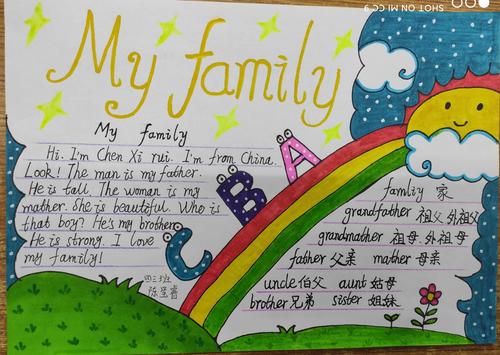 SHOT ON MI CC 9
My family
My family
Hi. I'm Chen Xi rui. I'm from China.
Look! The man is my father.
He is tall. The woman is my
mather. She is beautiful. Who is
that boy? He's my brother.
He is strong. I love
my family!
四三班
A
B
C
famliy 家
grandfather 祖父 外祖父
grandmather 祖母 外祖母
father 父亲 mather 母亲
uncle 伯父 aunt 姑母
brother 兄弟 sister 姐妹